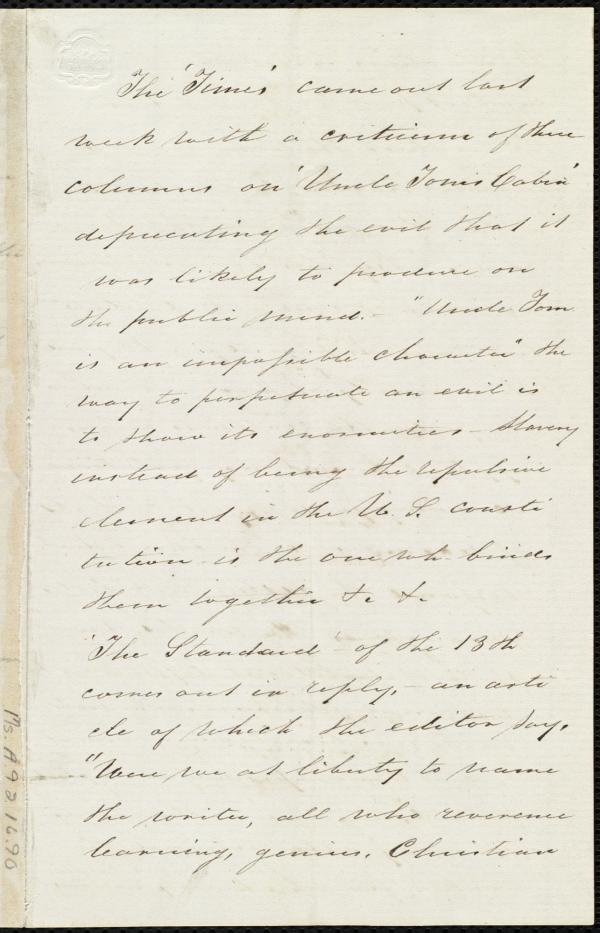 The 'Times' came out last
week with a criticism of three
columns on 'Uncle Tom's Cabin'
deprecating the evil that it
was likely to produce on
the public mind. - "Uncle Tom
is an impossible character" the
way to perpetuate an evil is
to show its enormities - Slavery
instead of being the repulsive
element in the U. S. consti
tution is the one wh binds
them together &c &c
'The Standard' of the 13th
comes out in reply, - an arti
cle of which the editor says,
"Were we at liberty to name
the writer, all who reverence
learning, genius, Christian
Ms. A.9.2.16.96